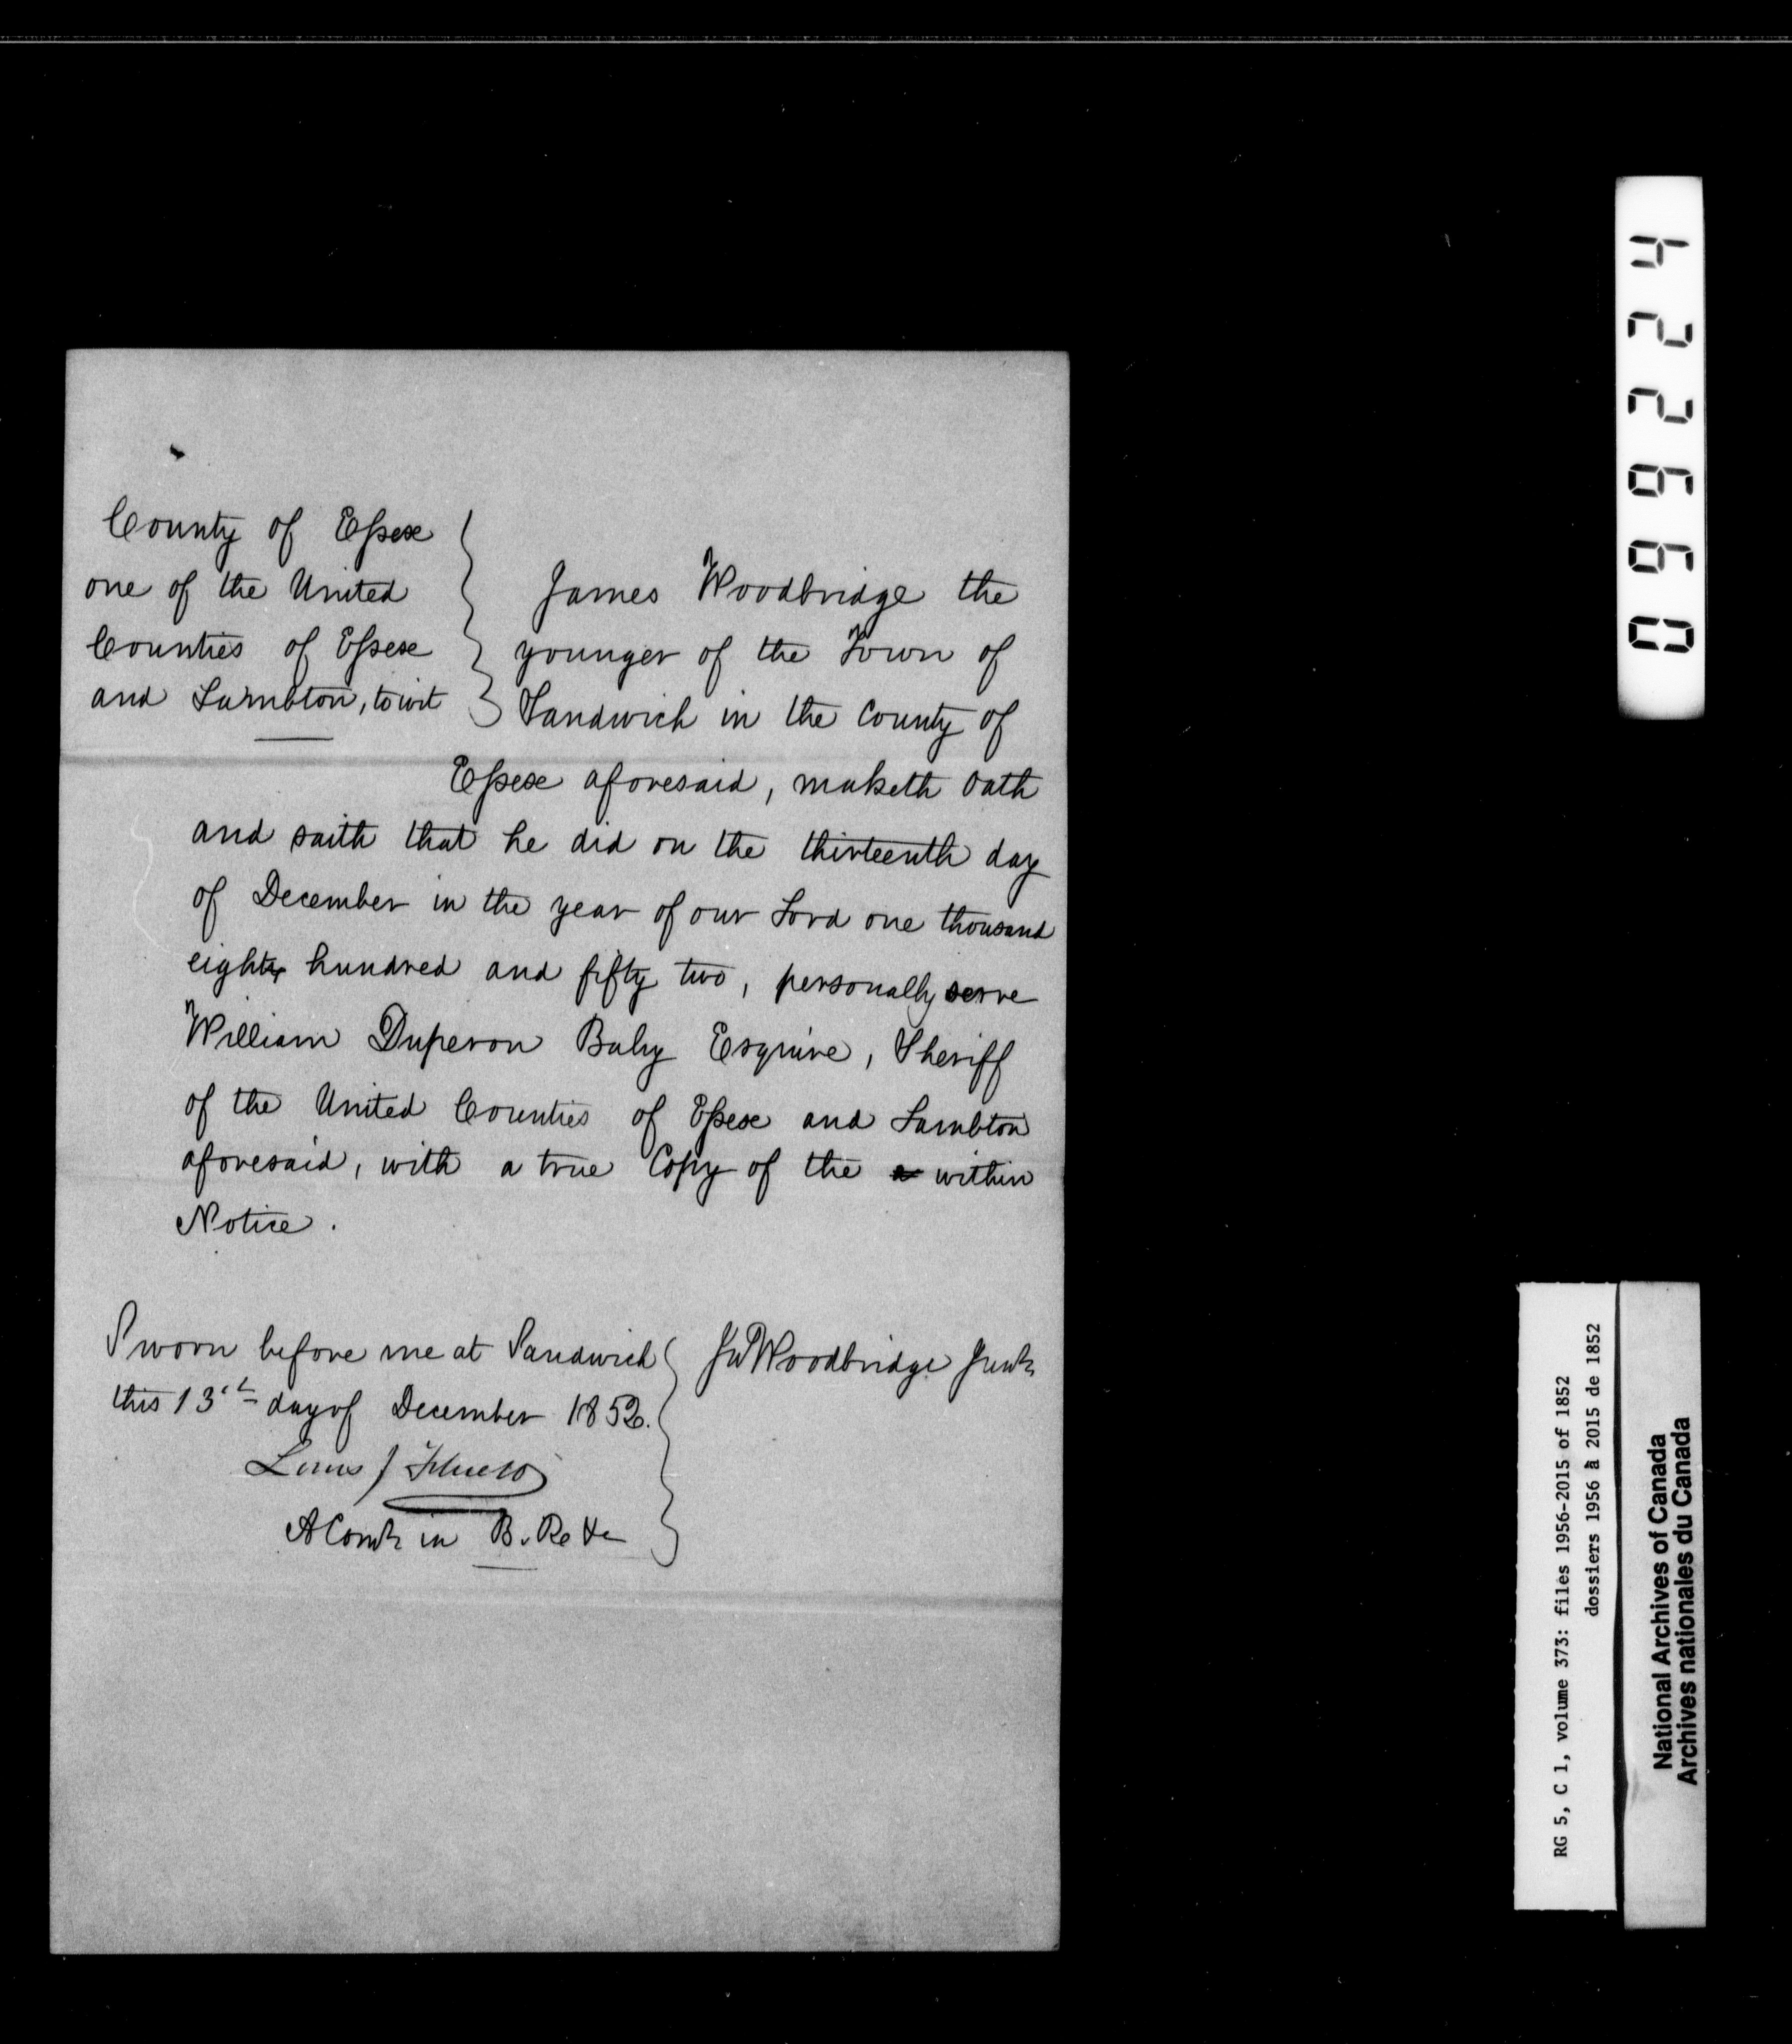 County of Essex
one of the United
Counties of Essex
and Lambton, to wit
James Woodbridge the
younger of the Town of
Sandwich in the County of
Essex aforesaid, maketh Oath
and saith that he did on the thirteenth day
of December in the year of our Lord one thousand
eight hundred and fifty two, personally serve
William Duperon Baby Esquire, Sheriff
of the United Counties of Essex and Lambton
aforesaid, with a true Copy of the within
Notice.
Sworn before me at Sandwich
this 13th day of December 1852.
Louis J
A Comr in B. R. &c
Js Woodbridge Junr
066224
RG 5, C 1, volume 373: files 1956-2015 of 1852
dossiers 1956 à 2015 de 1852
National Archives of Canada
Archives nationales du Canada